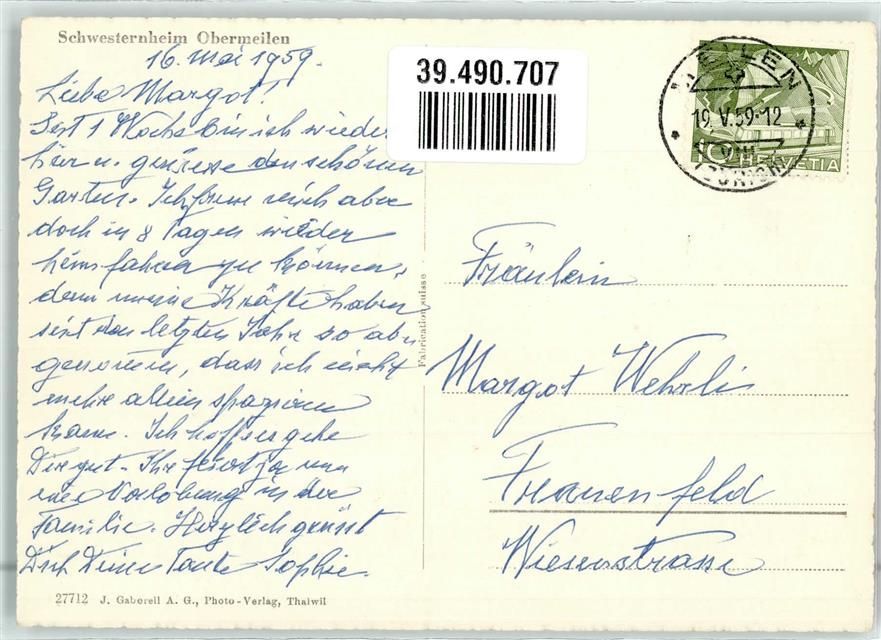 Schwesternheim Obermeilen
16. Mai 1959.
Liebe Margot!
Seit 1 Woche bin ich wieder
hier u. geniesse den schönen
Garten. Ich freue mich aber
doch in 8 Tagen wieder
heimfahren zu können,
denn meine Kräfte haben
seit dem letzten Jahr so ab-
genommen, dass ich nicht
mehr allein spazieren
kann. Ich hoffe es gehe
Dir gut. Ihr feiert ja nun
eine Verlobung in der
Familie. Herzlich grüsst
Dich Deine Tante Sophie.
27712 J. Gaberell A. G., Photo-Verlag, Thalwil
Fabrication suisse
39.490.707
MEILEN
19.V.59-12
(ZÜRICH)
10 HELVETIA
Fräulein
Margot Wehrli
Frauenfeld
Wiesenstrasse